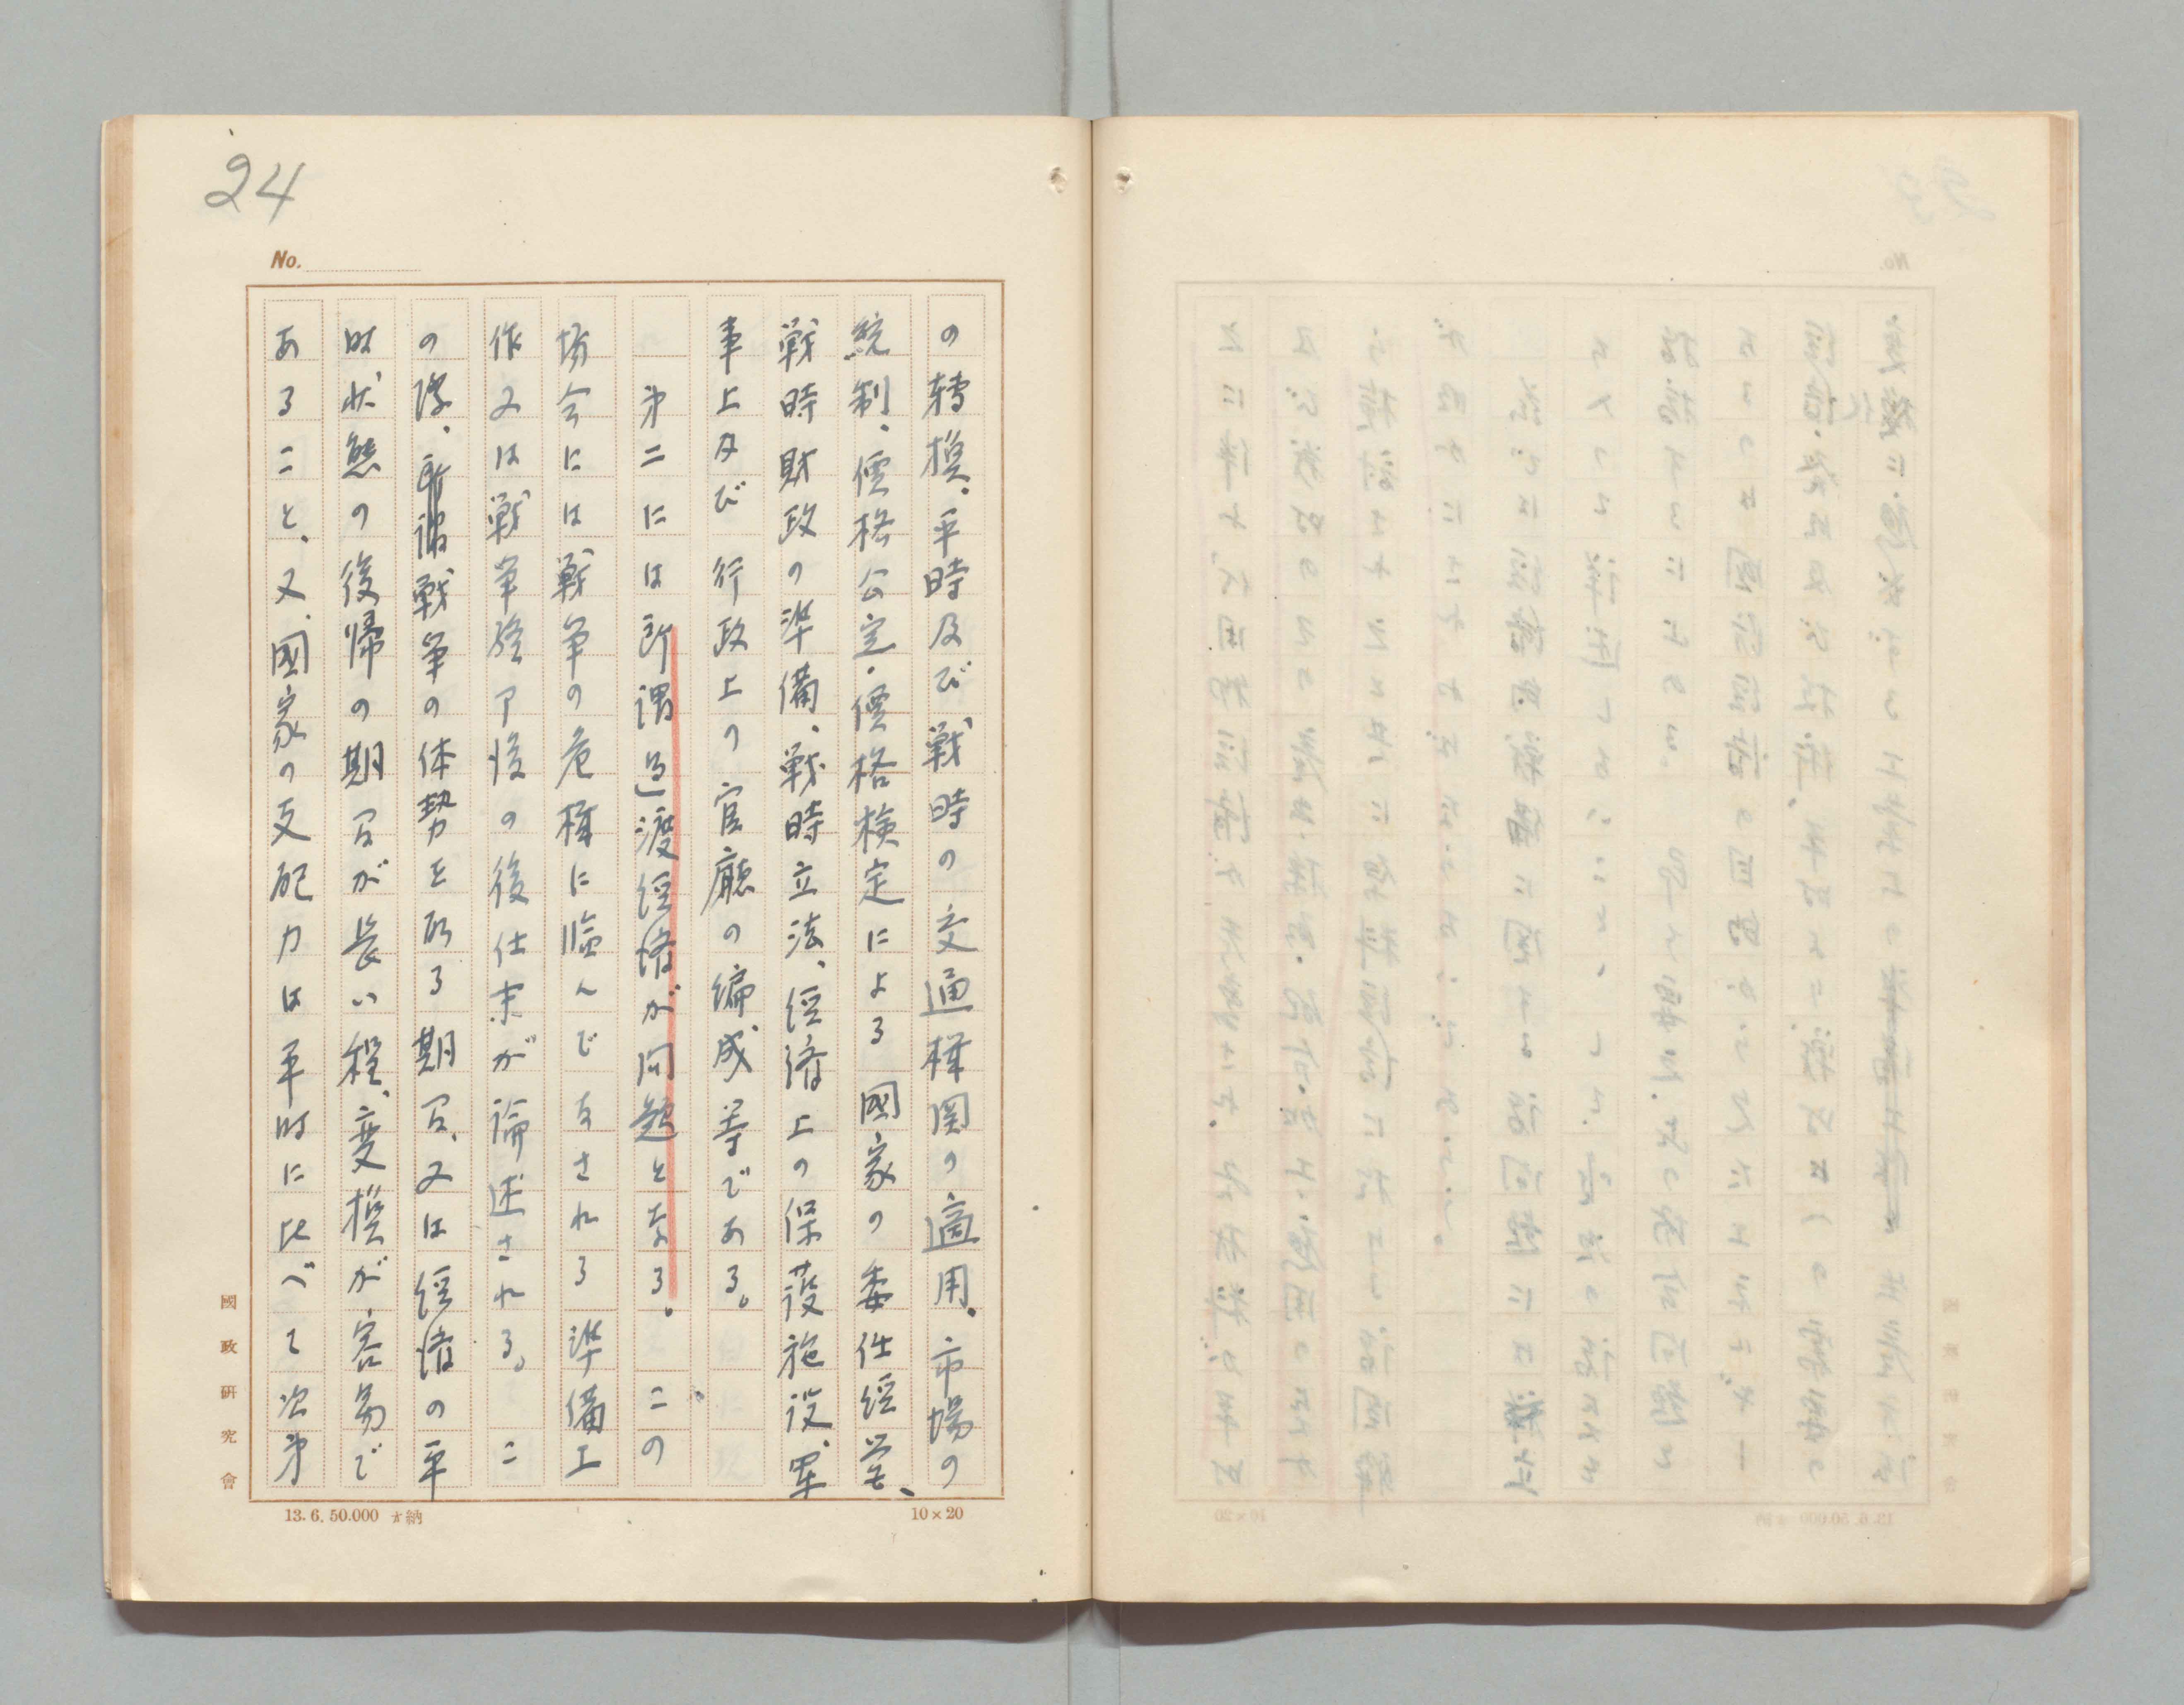 24
No.
の轉換、平時及び戦時の交通機関の適用、市場の
統制、價格公定・價格検定による國家の委任経営、
戦時財政の準備、戦時立法、経済上の保護施設、軍
事上及び行政上の官廳の編成等である。
第二には所謂過渡経済が問題となる。この
場合には戦争の危機に臨んでなされる準備工
作又は戦争終了後の後仕末が論述される。こ
の際、所謂戦争の体勢を取る期間、又は経済の平
時状態の後帰の期間が長い程、変換が容易で
あること、又、國家の支配力は平時に比べて次第
國政研究會
13. 6. 50.000 納
10×20